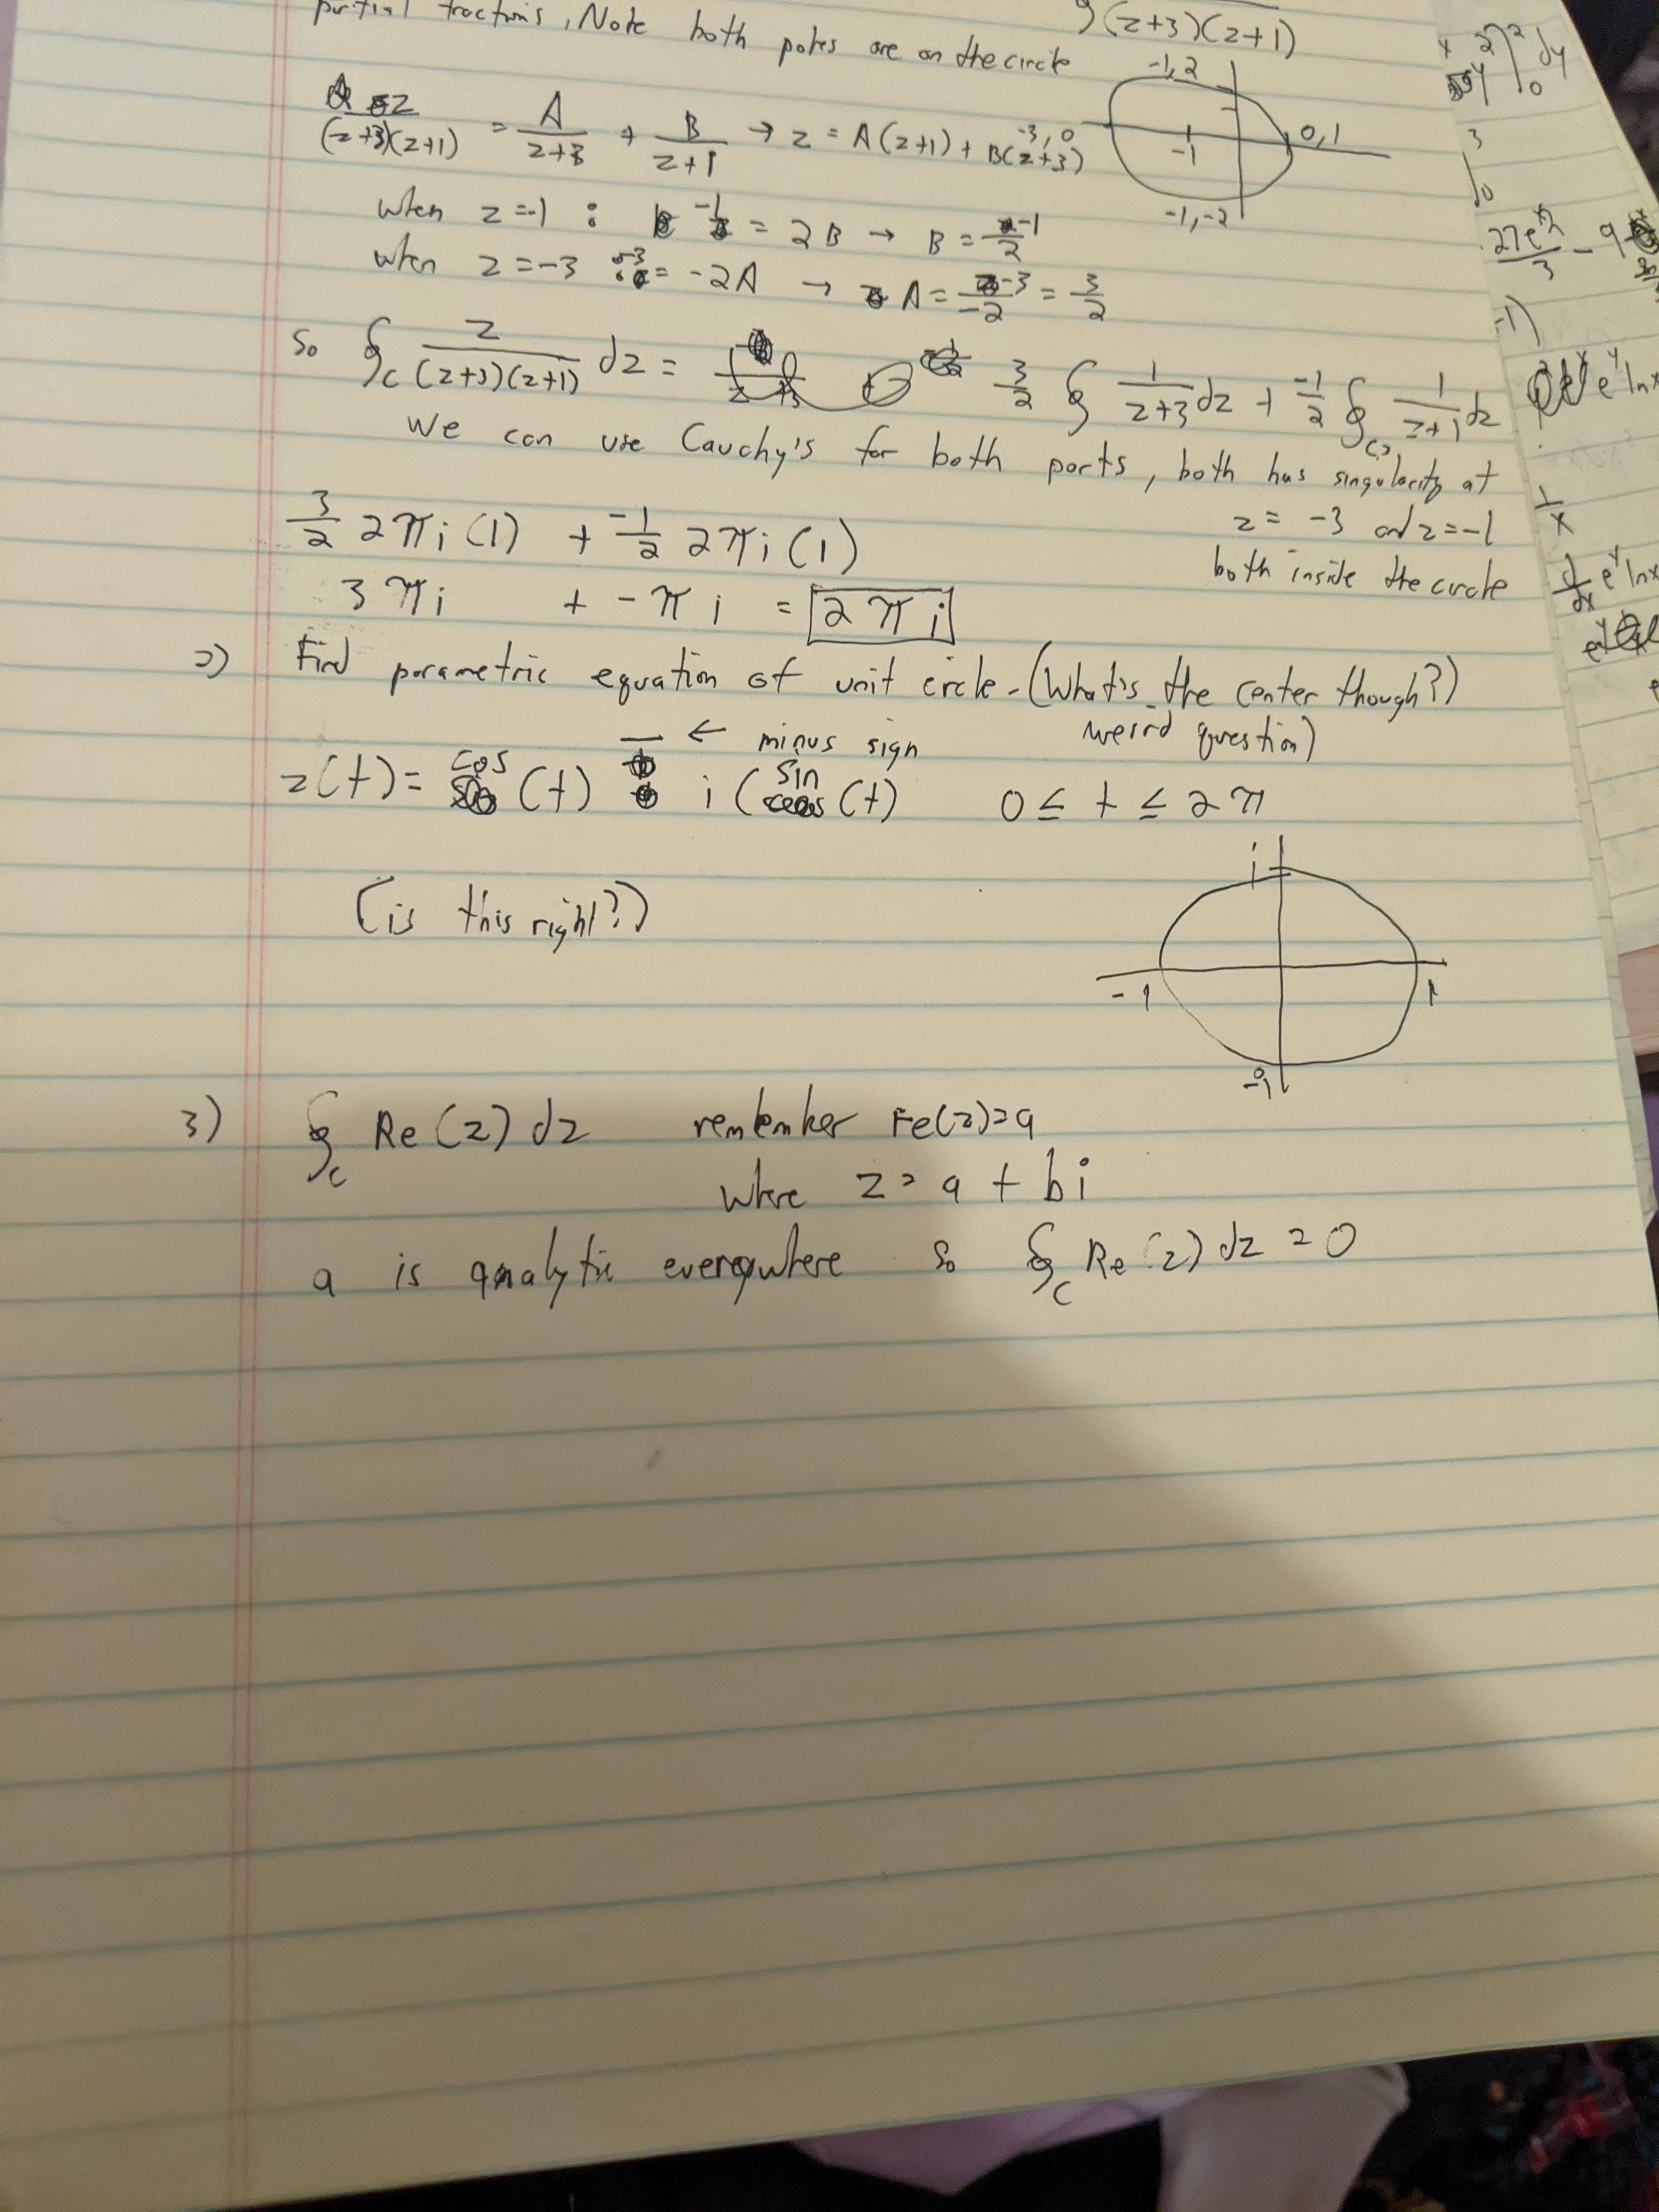 partial fractions, Note both poles are on the circle
(z+3)(z+1)
z/(z+3)(z+1) = A/z+3 + B/z+1 → z = A(z+1) + B(z+3)
-1, 2
-3, 0
-1
0, 1
-1, -2
when z = -1 : -1 = 2B → B = -1/2
when z = -3 : -3 = -2A → A = -3/-2 = 3/2
So ∮c z/(z+3)(z+1) dz = 3/2 ∮ 1/z+3 dz + -1/2 ∮c 1/z+1 dz
We can use Cauchy's for both parts, both has singularity at
z = -3 and z = -1
both inside the circle
3/2 2πi (1) + -1/2 2πi (1)
3πi + -πi = 2πi
2) Find parametric equation of unit circle - (What's the center though?)
weird question)
← minus sign
z(t) = cos (t) - i (sin (t) 0 ≤ t ≤ 2π
(is this right?)
i
-1
1
-i
3) ∮c Re(z) dz remember Fe(z)=a
where z = a + bi
a is analytic evereywhere so ∮c Re(z) dz = 0
x
2
dy
0
3
0
27e^2/3 - 9
-1)
e^y ln x
1/x
d/dx e^y ln x